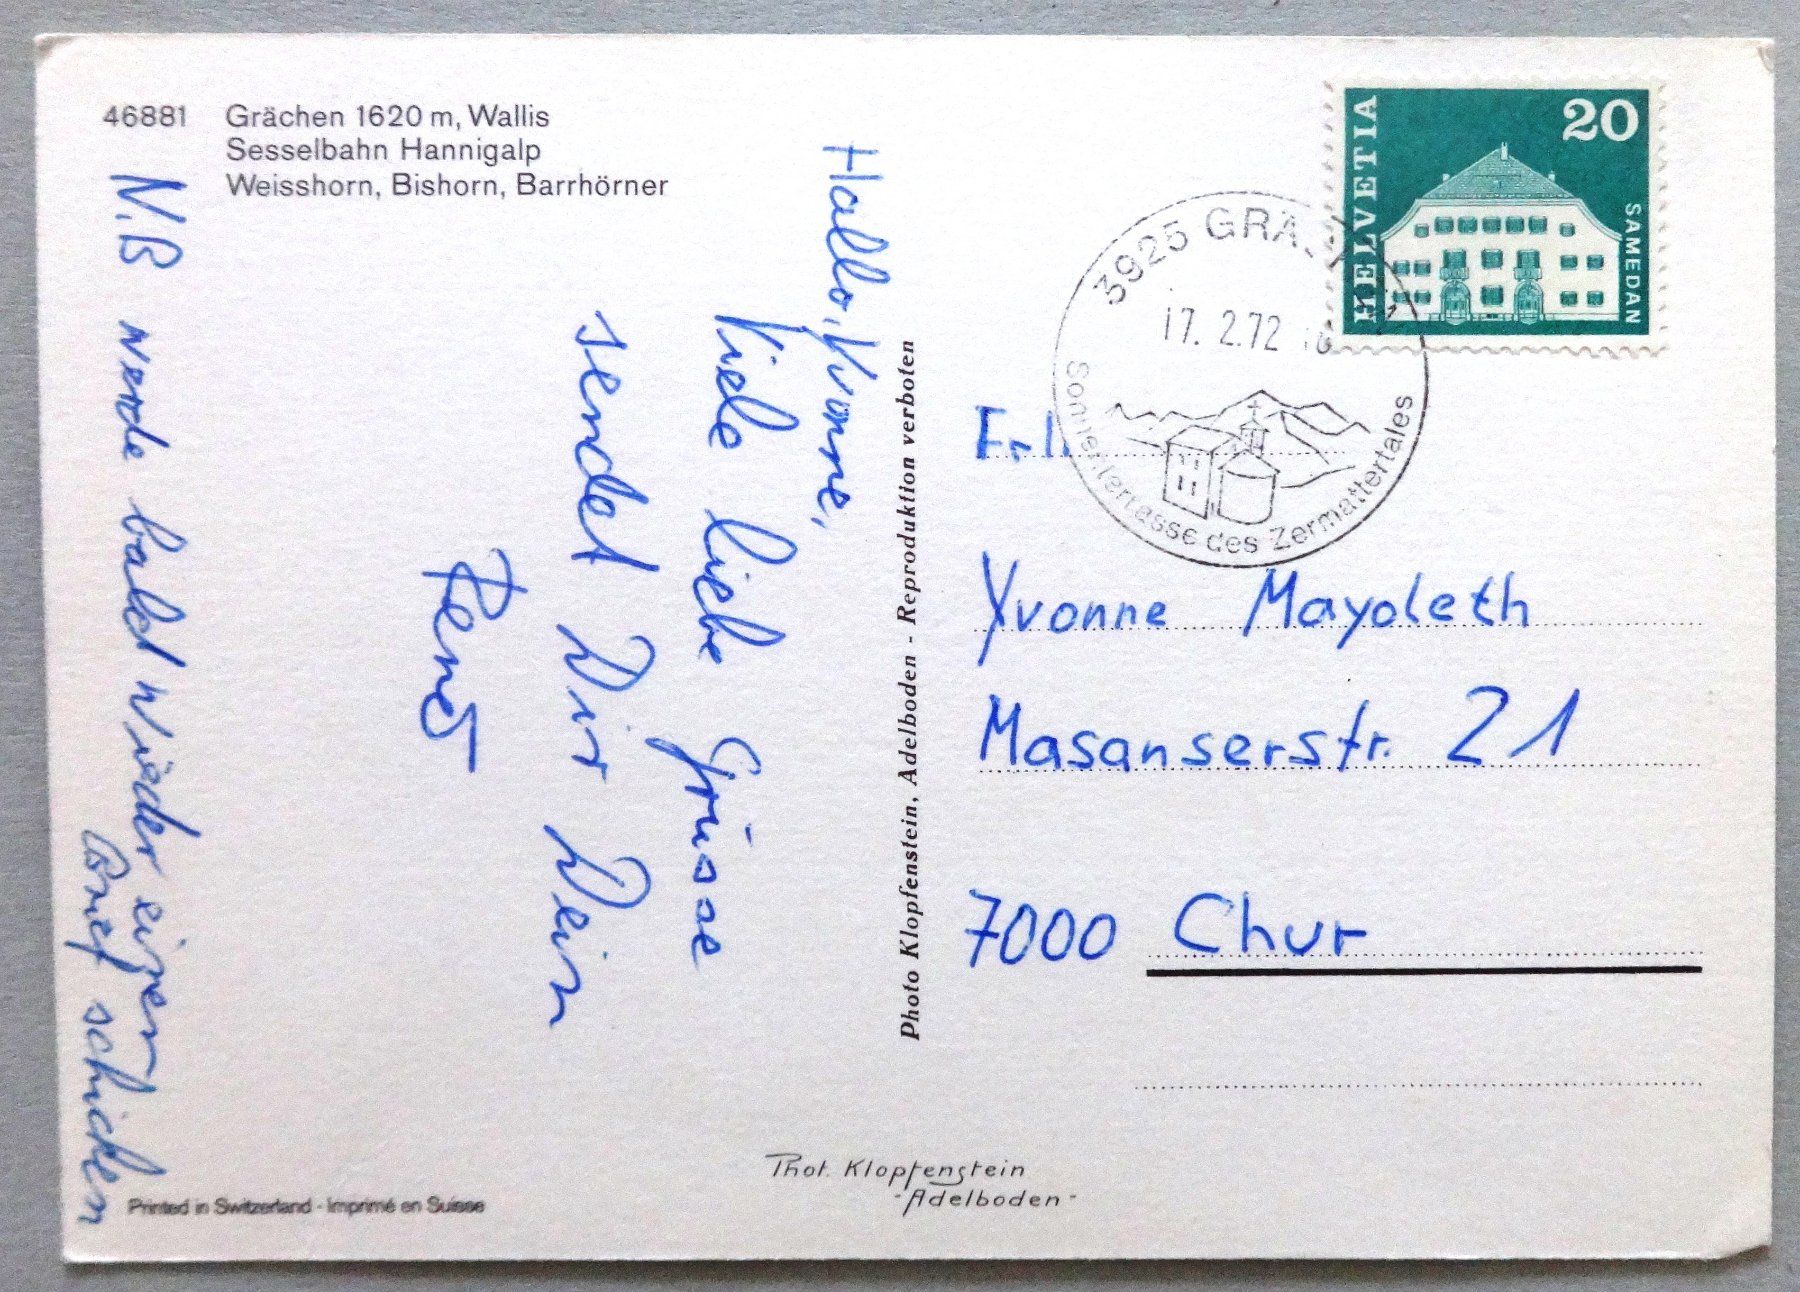 46881 Grächen 1620 m, Wallis
Sesselbahn Hannigalp
Weisshorn, Bishorn, Barrhörner
Hallo, Yvonne,
Viele liebe Grüsse
sendet Dir Dein
René
N.B werde bald wieder einen
Brief schicken
Photo Klopfenstein, Adelboden - Reproduktion verboten
HELVETIA
20
SAMEDAN
3925
17. 2.72
Sonnenterrasse des Zermattertales
Yvonne Mayoleth
Masanserstr. 21
7000 Chur
Phot. Klopfenstein
- Adelboden -
Printed in Switzerland - Imprimé en Suisse